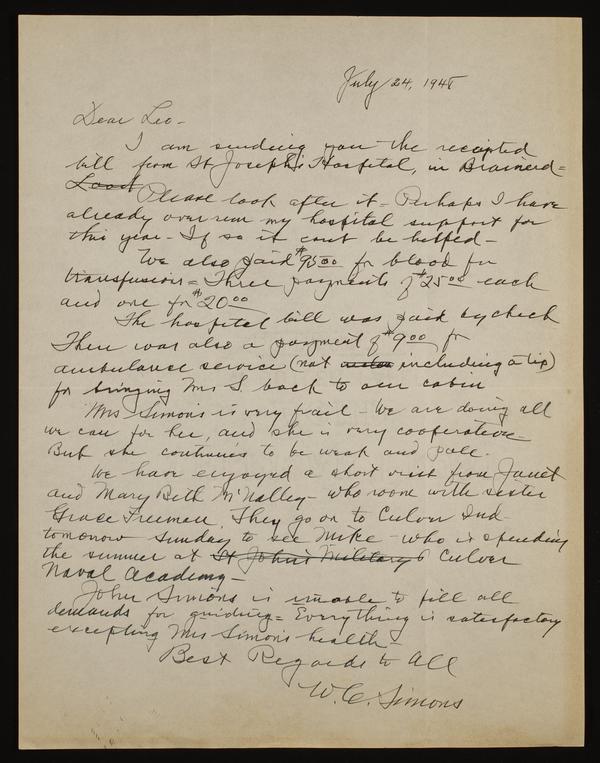 July 24, 194
Dear Leo -
I am sending you the receipted
bill from St Joseph's Hospital, in Brainerd =
Please look after it = Perhaps I have
already overrun my hospital support for
this year - If so it cant be helped -
We also paid $95.00 for blood for
transfusions = Three payments of $25.00 each
and one for $20.00
The hospital bill was paid by check
There was also a payment of $9.00 for
ambulance service (not including a tip)
for bringing Mrs S back to our cabin
Mrs Simons is very frail - We are doing all
we can for her, and she is very cooperative -
But she continues to be weak and pale -
We have enjoyed a short visit from Janet
and Mary Beth McNalley - who room with sister
Grace Freeman. They go on to Culver Ind -
tomorow Sunday to see Mike - who is spending
the summer at St John's Military Culver
Naval Academy -
John Simons is unable to fill all
demands for guiding = Everything is satisfactory
excepting Mrs Simons health -
Best Regards to all
W. C. Simons